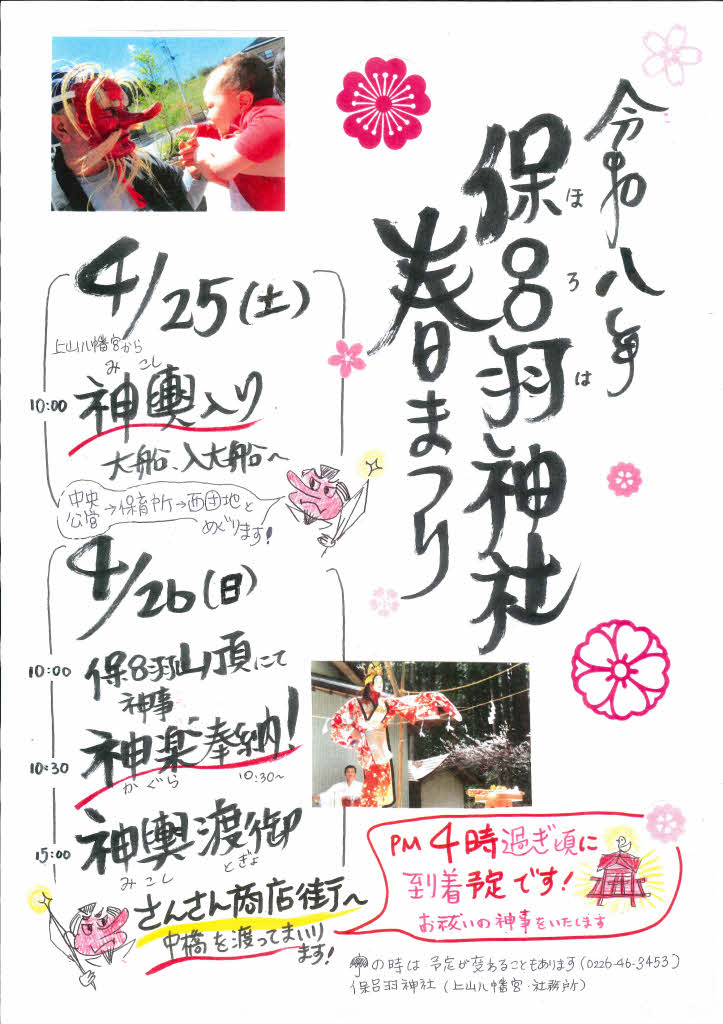 令和八年
保呂羽神社
ほろは
春まつり
4/25(土)
上山八幡宮から
みこし
10:00 神輿入り
大船、入大船〜
中央公営→保育所→西団地とめぐります!
4/26(日)
10:00 保呂羽山頂にて
神事
10:30 神楽奉納!
かぐら 10:30〜
15:00 神輿渡御
みこし とぎょ
さんさん商店街へ
中橋を渡ってまいります!
PM 4時過ぎ頃に
到着予定です!
お祓いの神事をいたします
の時は予定が変わることもあります(0226-46-3453)
保呂羽神社(上山八幡宮・社務所)